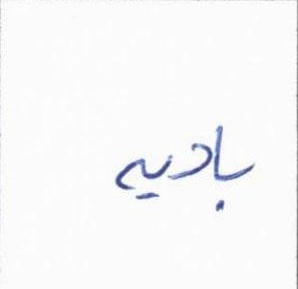 بادیه